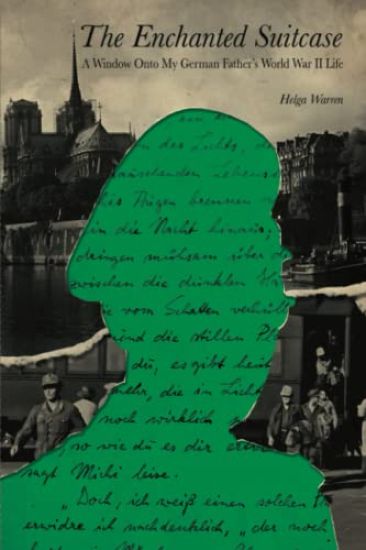 The Enchanted Suitcase
A Window Onto My German Father's World War II Life
Helga Warren
en des Lichts, de
rauschenden Lebens
Augen brennen
in die Nacht hinaus,
dringen mühsam über d
zwischen die dunklen Hä
vom Schatten verhüll
und die stillen Pl
du, es gibt heut
mehr, die im Licht
noch wirklich
so wie du es dir er
sagt Michi leise.
"Doch, ich weiß einen solchen
erwidre ich nachdenklich, "der noch